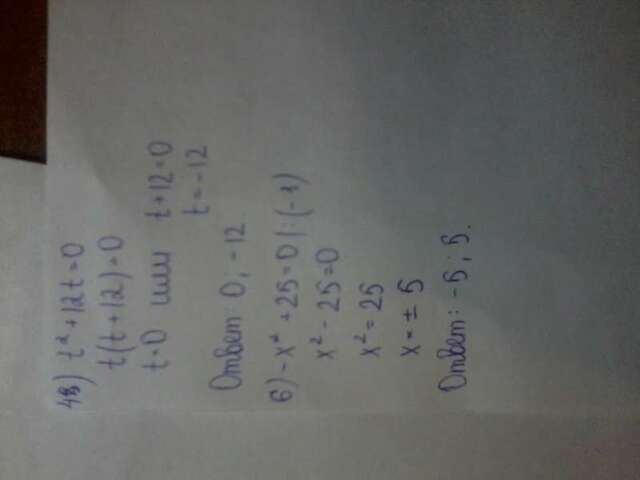 4в) t²+12t=0
t(t+12)=0
t=0 или t+12=0
t=-12
Ответ 0; -12.
б) -x²+25=0 |:(-1)
x²-25=0
x²=25
x=±5
Ответ: -5; 5.